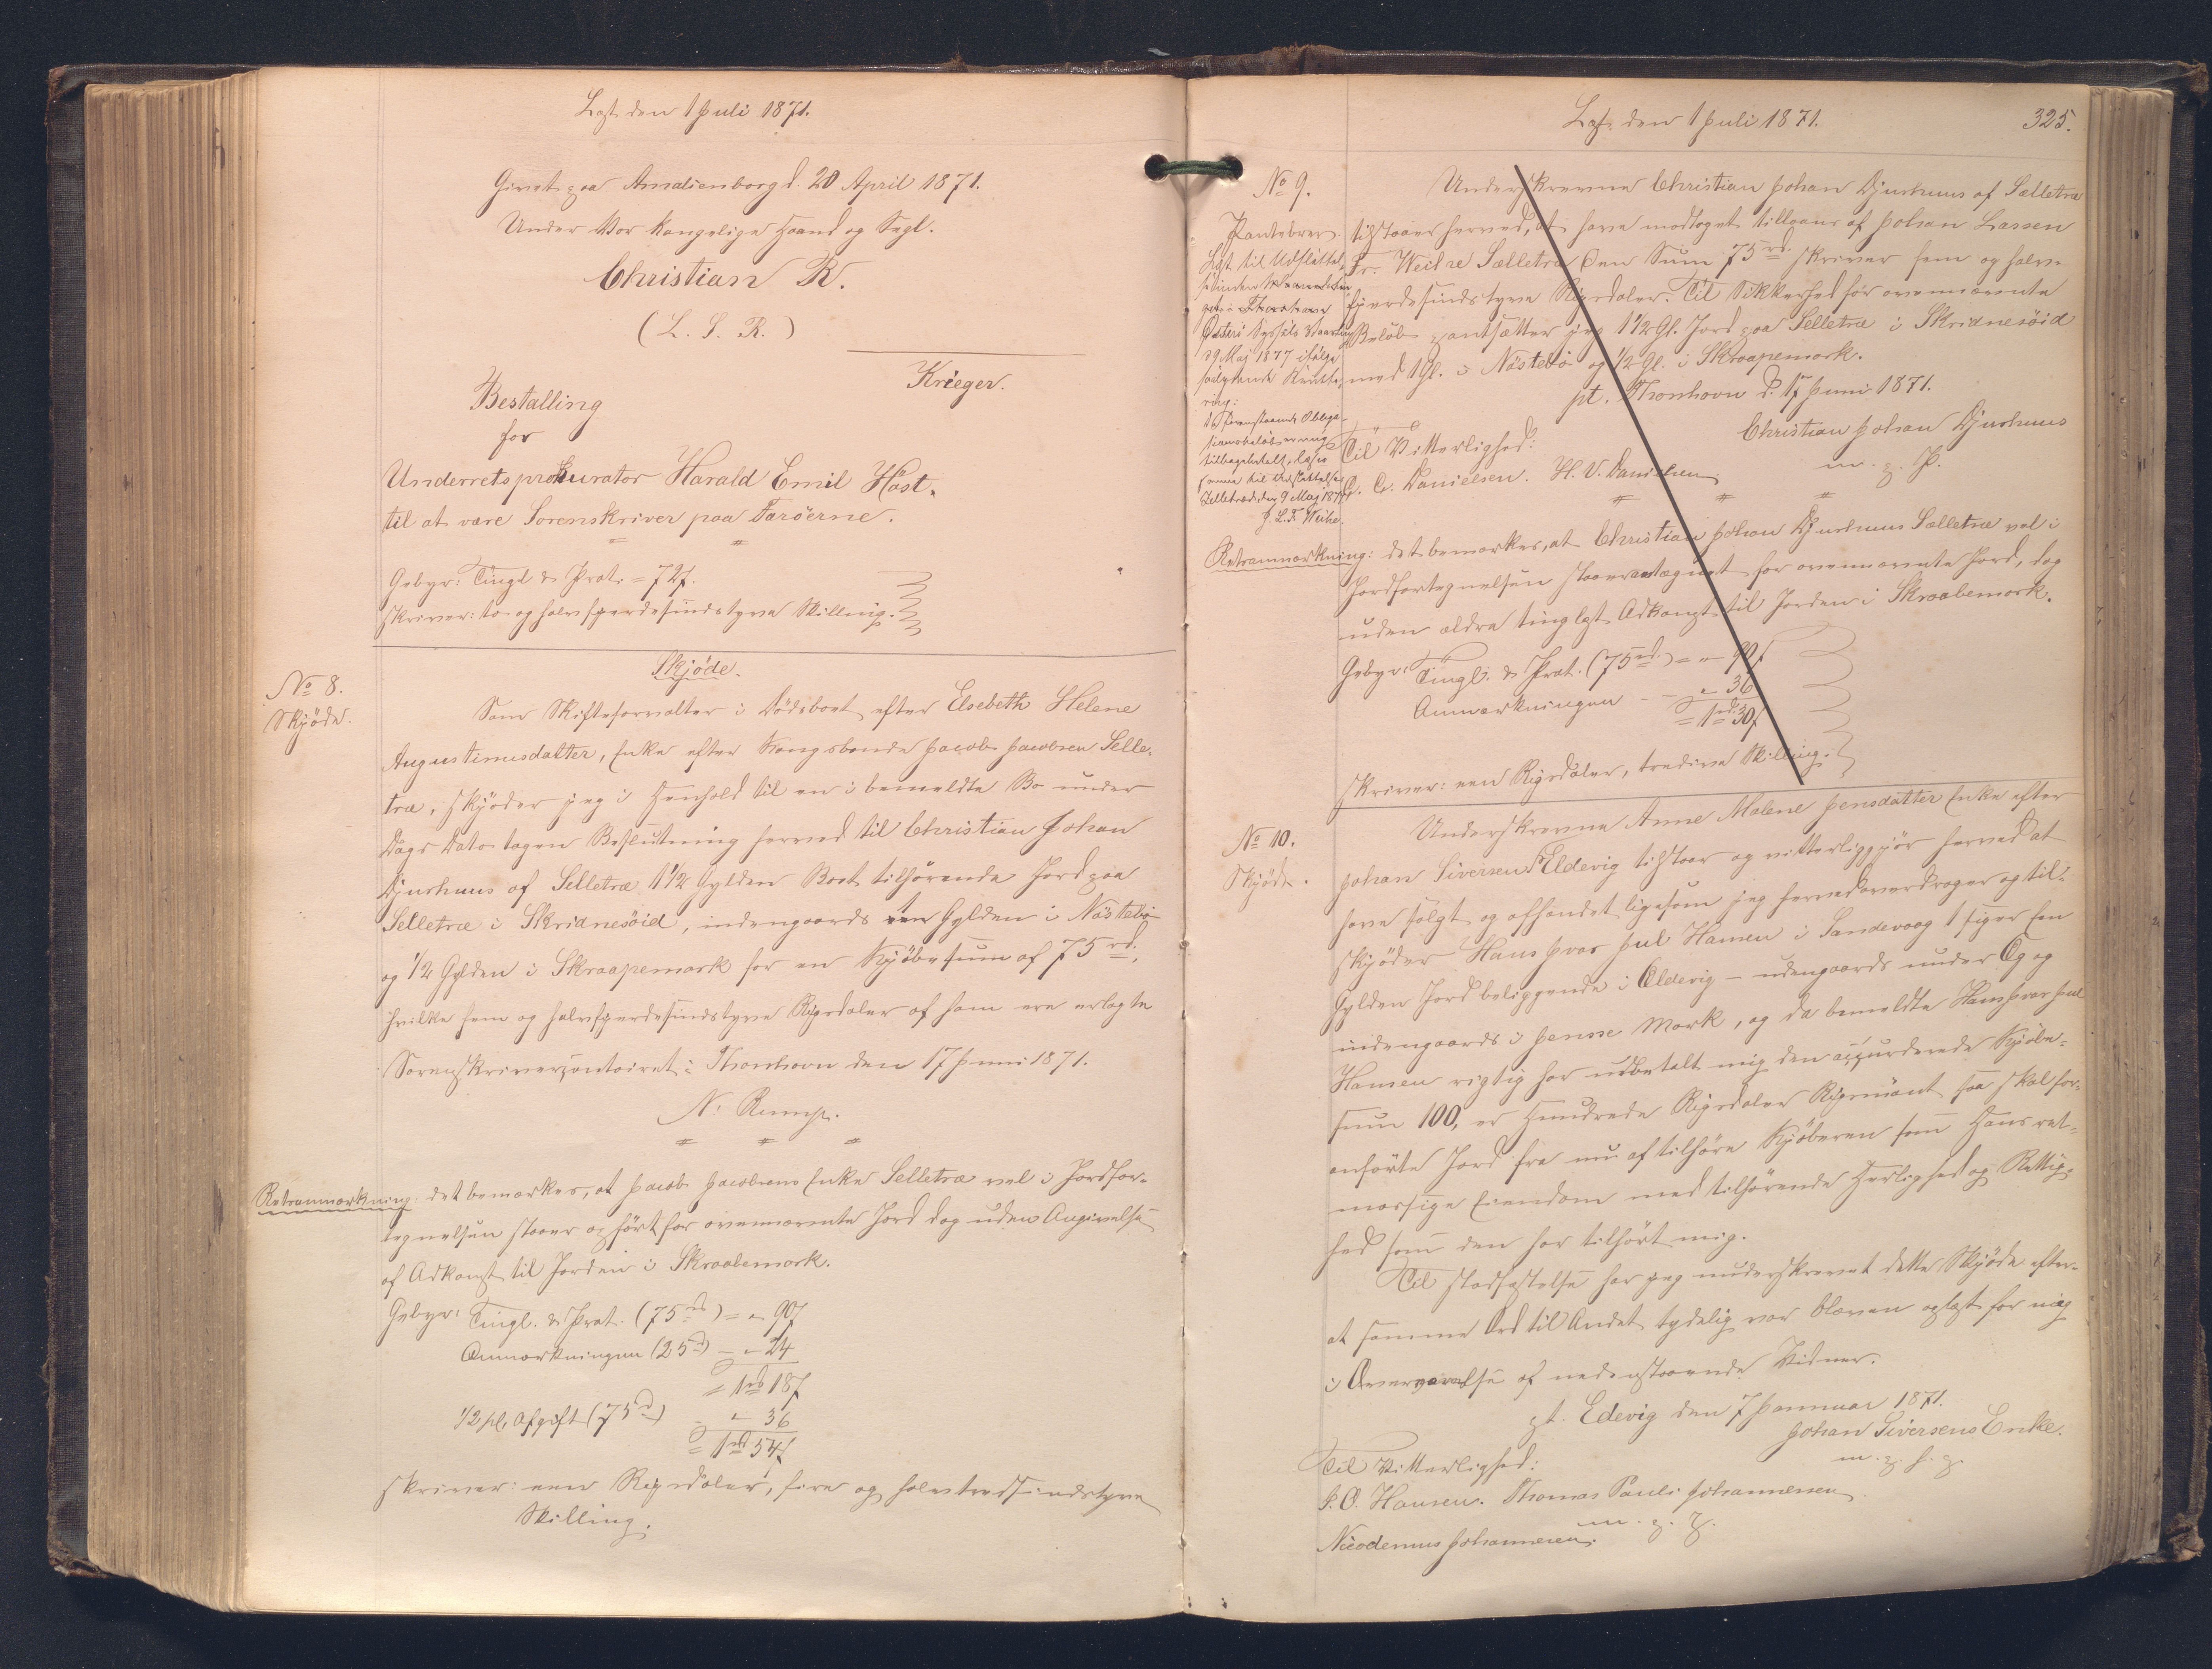 Læst den 1 Juli 1871.
Givet paa Amalienborg d. 20 April 1871.
Under Vor Kongelige Haand og Segl.
Christian R.
(L. S. R.)
Krieger.
Bestalling
for
Underretsprokurator Harald Emil Höst,
til at være Sorenskriver paa Færöerne.
Gebyr: Tingl. & Prot. = 72f.
skriver: to og halvfjerdesindstyve Skilling.
No 8.
Skjöde.
Skjöde.
Som Skifteforvalter i Dödsboet efter Elsebeth Helene
Augustinusdatter, Enke efter Kongsbonde Jacob Jacobsen Selle-
træ, skjöder jeg i Henhold til en i bemeldte Bo under
Dags Dato tagen Beslutning herved til Christian Johan
Djurhuus af Selletræ 1 1/2 Gylden Boet tilhörende Jord paa
Selletræ i Skridnesöid, indengaards een Gylden i Nöstebö
og 1/2 Gylden i Skraapemark for en Kjöbesum af 75 rd.,
hvilke fem og halvfjerdesindstyve Rigsdaler af ham ere erlagte
Sorenskrivercontoiret i Thorshavn den 17 Juni 1871.
N. Rump.
Retsanmærkning: det bemærkes, at Jacob Jacobsens Enke Selletræ vel i Jordfor-
tegnelsen staaer opfört for ovennævnte Jord dog uden Angivelse
af Adkomst til Jorden i Skraabemork.
Gebyr: Tingl. & Prot. (75 rd) = " 90f
Anmærkningen (25 rd) — " 24
= 1 rd 18f
1/2 pCt Afgift (75 rd) - " 36
= 1 rd 54f
skriver: een Rigsdaler, fire og halvtredsindstyve
Skilling.
Læst den 1 Juli 1871.
325.
No 9.
Pantebrev.
Læst til Udslettelse
Österö Syssels Vaarting
29 Maj 1877 ifölge
saalydende Kvitte-
ring:
foranstaaende Obliga-
tionsbeløb er mig
tilbagebetalt, læses
samme til Udslettelse
Selletræ, den 9 Maj 1877
J. L. F. Weihe.
Underskrevne Christian Johan Djurhuus af Sælletræ
tilstaaer herved, at have modtaget tillaans af Johan Lassen
Fr. Weihe Sælletræ den Sum 75 rd. skriver fem og halv-
fjerdesindstyve Rigsdaler. Til Sikkerhed for ovennævnte
Beløb pantsætter jeg 1 1/2 Gl. Jord paa Selletræ i Skridnesöid
med 1 Gl. i Nöstebö og 1/2 Gl. i Skraapemork.
pt. Thorshavn d. 17 Juni 1871.
Christian Johan Djurhuus
m. p. P.
Til Vitterlighed:
C. Danielsen. H. V. Danielsen
Retsanmærkning: det bemærkes, at Christian Johan Djurhuus Sælletræ vel i
Jordfortegnelsen staaer antegnet for ovennævnte Jord, dog
uden ældre tinglæst Adkomst til Jorden i Skraabemork.
Gebyr: Tingl. & Prot. (75 rd.) = " 90f
Anmærkningen - " 36
= 1 rd 30f
skriver: een Rigsdaler, tredive Skilling.
No 10.
Skjöde.
Underskrevne Anne Malene Jensdatter Enke efter
Johan Siversen Eldevig tilstaar og vitterliggjör herved at
have solgt og afhændet ligesom jeg herved overdrager og til-
skjöder Hans Ivar Juul Hansen i Sandevaag 1 siger Een
Gylden Jord beliggende i Eldevig — udengaards under Eg og
indengaards i Jensse Mork, og da bemeldte Hans Ivar Juul
Hansen rigtig har udbetalt mig den accurderede Kjöbe-
sum 100, er Hundrede Rigsdaler Rigsmönt saa skal for-
anförte Jord fra nu af tilhöre Kjöberen som Hans ret-
mæssige Eiendom med tilhörende Herlighed og Rettig-
hed som den har tilhört mig.
Til Stadfæstelse har jeg underskrevet dette Skjöde efter-
at samme Ord til Andet tydelig var bleven oplæst for mig
i Overværelse af nedenstaaende Vidner.
pt. Edevig den 7 Januar 1871.
Johan Siversens Enke.
m. p. f. p.
Til Vitterlighed:
P. O. Hansen. Thomas Pauli Johannesen
m. p. P.
Nicodemus Johannesen.